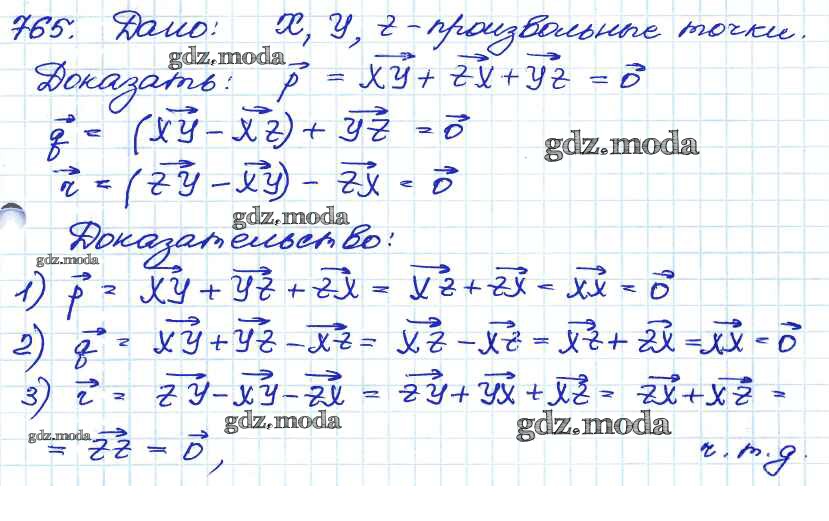 765. Дано: X, Y, Z - произвольные точки.
gdz.moda
Доказать: p⃗ = XY⃗ + ZX⃗ + YZ⃗ = 0⃗
q⃗ = (XY⃗ - XZ⃗) + YZ⃗ = 0⃗
gdz.moda
r⃗ = (ZY⃗ - XY⃗) - ZX⃗ = 0⃗
gdz.moda
Доказательство:
gdz.moda
1) p⃗ = XY⃗ + YZ⃗ + ZX⃗ = XZ⃗ + ZX⃗ = XX⃗ = 0⃗
2) q⃗ = XY⃗ + YZ⃗ - XZ⃗ = XZ⃗ - XZ⃗ = XZ⃗ + ZX⃗ = XX⃗ = 0⃗
3) r⃗ = ZY⃗ - XY⃗ - ZX⃗ = ZY⃗ + YX⃗ + XZ⃗ = ZX⃗ + XZ⃗ =
gdz.moda gdz.moda
gdz.moda
= ZZ⃗ = 0⃗, ч.т.д.